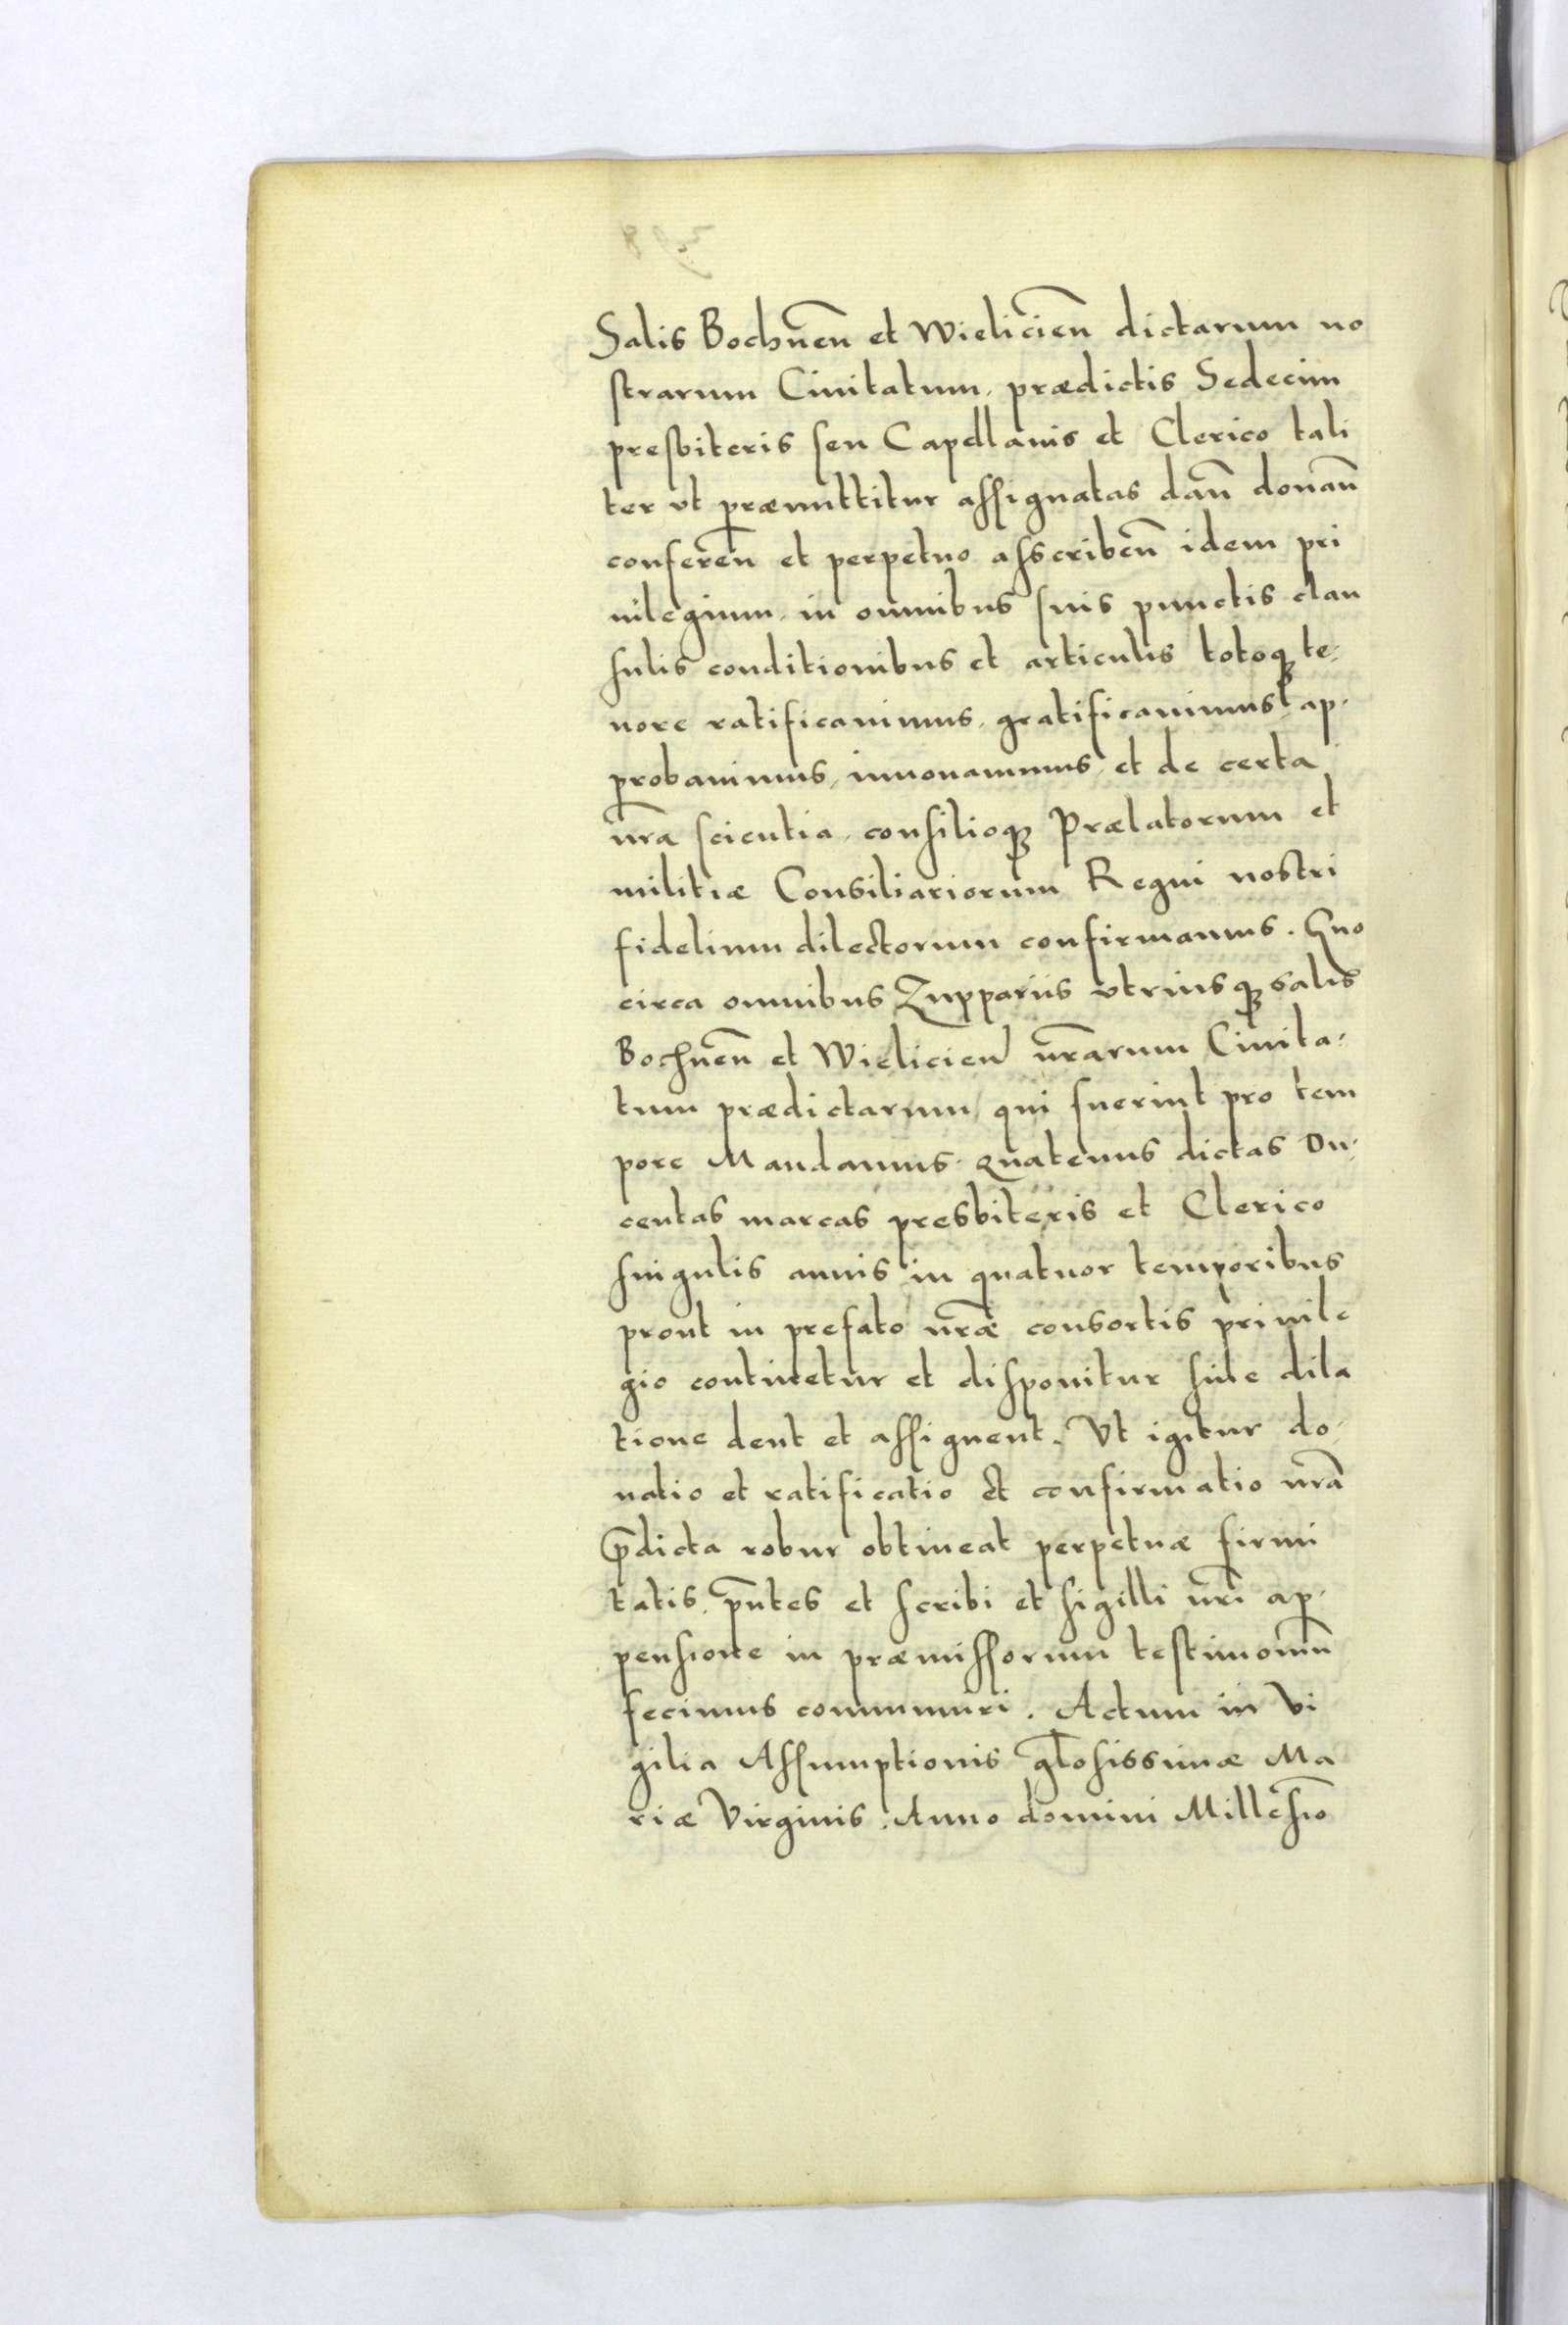 Salis Bochnen̄ et Wielicien̄ dictarum no
strarum Ciuitatum, prædictis Sedecim
presbiteris seu Capellanis et Clerico tali
ter vt præmittitur assignatas dan̄ donan̄
conferen̄ et perpetuo asscriben̄ idem pri
uilegium, in omnibus suis punctis clau
sulis conditionibus et articulis totoq₃ te-
nore ratificauimus, gratificauimus, ap-
probauimus, innouauimus, et de certa
nr̄a scientia, consilioq₃ Prælatorum et
militiæ Consiliariorum Regni nostri
fidelium dilectorum confirmamus. Quo
circa omnibus Zuppariis vtriusq₃ salis
Bochnen̄ et Wielicien̄ nr̄arum Ciuita-
tum prædictarum, qui fuerint pro tem
pore Mandamus. quatenus dictas Du-
centas marcas presbiteris et Clerico
singulis annis in quatuor temporibus
prout in prefato nr̄æ consortis priuile
gio continetur et disponitur sine dila
tione dent et assignent. Vt igitur do-
natio et ratificatio et confirmatio nr̄a
p̄dicta robur obtineat perpetuæ firmi
tatis, pn̄tes et scribi et sigilli nr̄i ap-
pensione in præmissorum testimoniū
fecimus communiri. Actum in Vi
gilia Assumptionis gl̄osissimæ Ma
riæ Virginis. Anno domini Millesīo